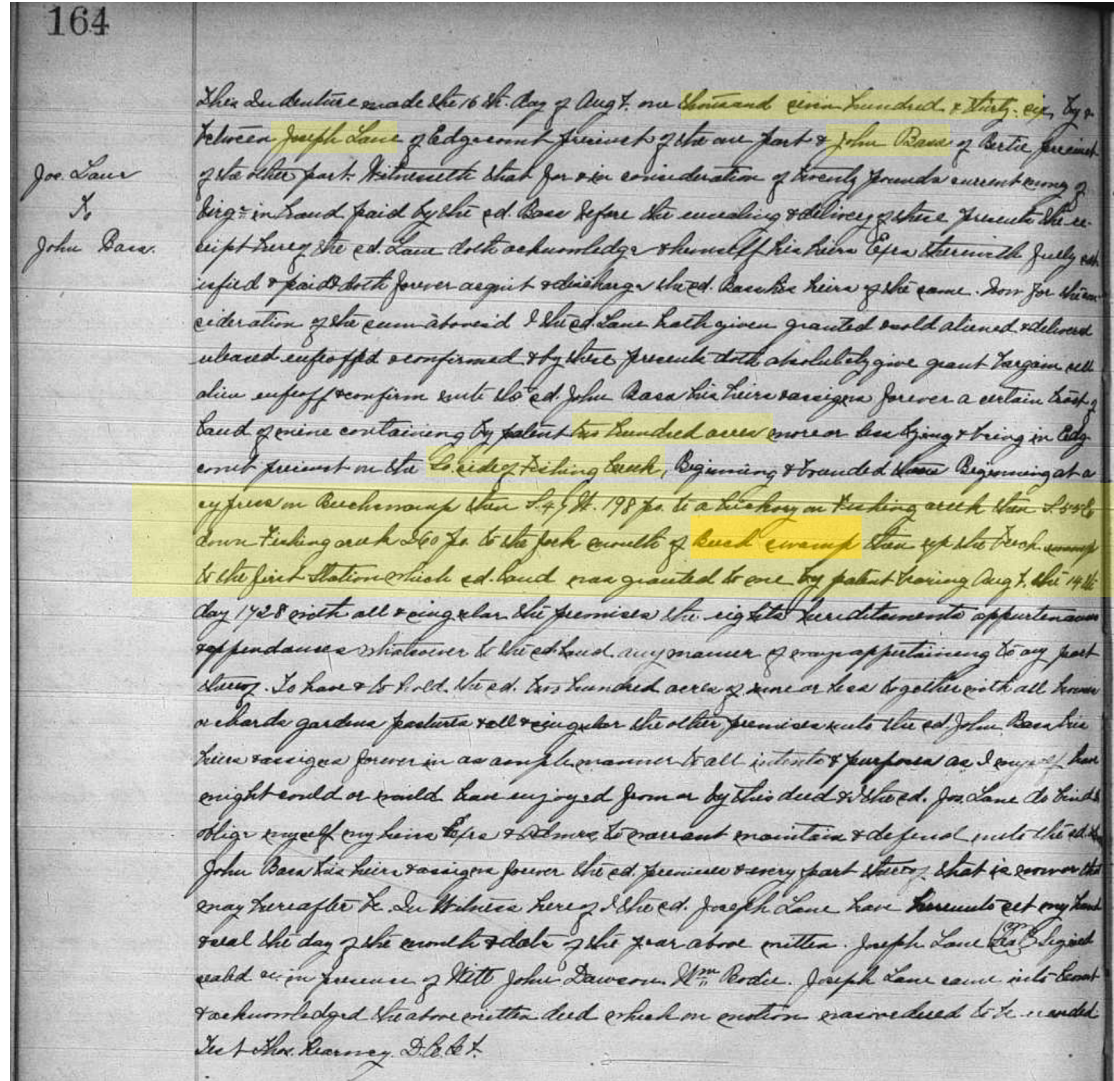 164
This Indenture made the 16 th. day of Aug t. one thousand seven hundred & thirty-six, by &
between Joseph Lane of Edgecomt precinct of the one part & John Bass of Bertie precinct
Jos. Lane
To
John Bass.
of the other part. Witnesseth that for & in consideration of twenty pounds current mony of
Virga in hand paid by the sd. Bass before the ensealing & delivery of these presents the re-
ceipt hereof the sd. Lane doth acknowledge & himself his heirs Exrs therewith fully sat-
isfied & paid & doth forever acquit & discharge the sd. Bass his heirs of the same. Now for the con-
sideration of the sum abovesd I the sd. Lane hath given granted & sold aliened & delivered
released enfeoffed & confirmed & by these presents doth absolutely give grant bargain sell
alien enfeoff & confirm unto the sd. John Bass his heirs & assigns forever a certain tract of
land of mine containing by patent two hundred acres more or less lying & being in Edg-
comt precinct on the So. side of Fishing Creek, Beginning & bounded Beginning at a
cypress on Beech swamp then S. 45 W. 198 po. to a hickory on Fishing creek then S. 55 E
down Fishing creek 240 po. to the fork mouth of Beech swamp then up the Beech swamp
to the first Station which sd. land was granted to me by patent bearing Aug t. the 14 th
day 1728 with all & singular the premises the rights hereditaments appurtenances
& appendances whatsoever to the sd. land any manner of ways appertaining to any part
thereof. To have & to hold the sd. two hundred acres of more or less together with all houses
orchards gardens pastures & all & singular the other premises unto the sd. John Bass his
heirs & assigns forever in as ample manner to all intents & purposes as I myself have
might could or would have enjoyed from or by this deed & I the sd. Jos. Lane do bind &
oblige myself my heirs Exrs & Admrs, to warrant maintain & defend unto the sd.
John Bass his heirs & assigns forever the sd. premises & every part thereof that is now or that
may hereafter be. In Witness hereof I the sd. Joseph Lane have hereunto set my hand
& seal the day of the month & date of the year above written. Joseph Lane Seal Signed
seald &c in presence of Witt John Dawson. Wm Bodie. Joseph Lane came into Court
& acknowledged the above written deed which on motion was ordered to be recorded
Test Thos. Kearney. D. C. Ct.